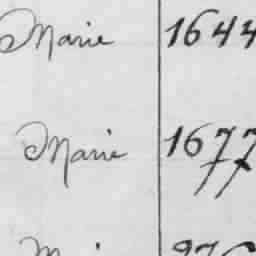 Marie 1644
Marie 1677